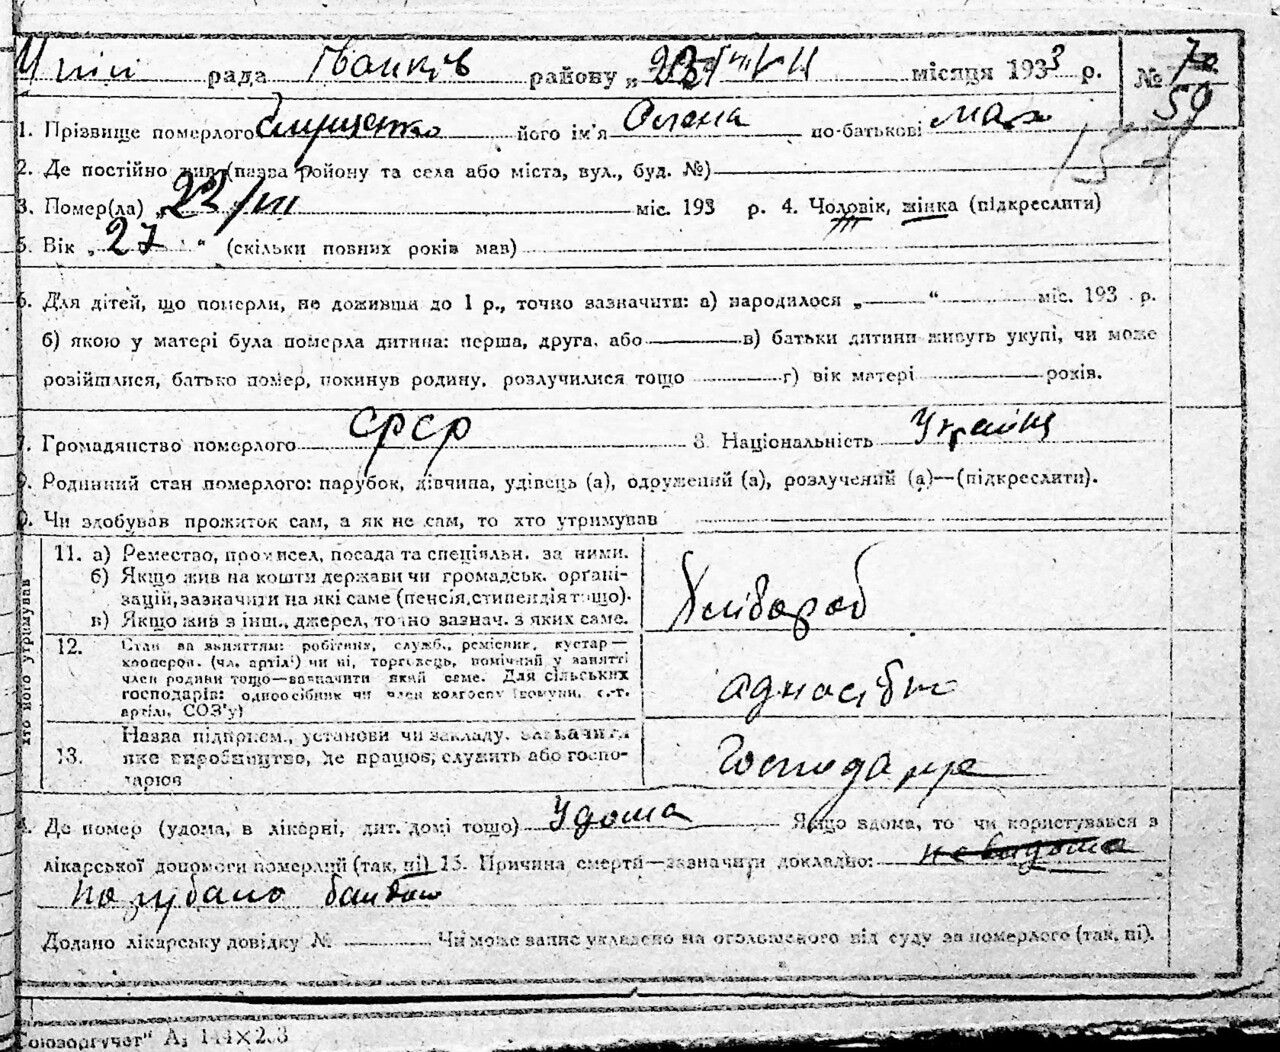 рада Іванків району „ місяця 1933 р. № 70
59
1. Прізвище померлого його ім'я Олена по-батькові Мах
2. Де постійно жив (назва району та села або міста, вул., буд. №)
3. Помер(ла) „ 22/VIII міс. 193 р. 4. Чоловік, жінка (підкреслити)
5. Вік „ 27 “ (скільки повних років мав)
6. Для дітей, що померли, не доживши до 1 р., точно зазначити: а) народилося „ “ міс. 193 р.
б) якою у матері була померла дитина: перша, друга, або в) батьки дитини живуть укупі, чи може
розійшлися, батько помер, покинув родину, розлучилися тощо г) вік матері років.
7. Громадянство померлого СРСР 8. Національність Україн
9. Родинний стан померлого: парубок, дівчина, удівець (а), одружений (а), розлучений (а)—(підкреслити).
0. Чи здобував прожиток сам, а як не сам, то хто утримував
хто його утримував
11. а) Ремество, промисел, посада та спеціяльн. за ними.
б) Якщо жив на кошти держави чи громадськ. орґані-
зацій, зазначити на які саме (пенсія, стипендія тощо).
в) Якщо жив з інш., джерел, точно зазнач. з яких саме.
Хлібороб
12. Стан за заняттям: робітник, служб., ремісник, кустар—
кооперов. (чл. артілі) чи ні, торговець, помічний у занятті
член родини тощо—зазначити який саме. Для сільських
господарів: одноосібник чи член колгоспу (комуни, с.-г.
артіль, СОЗ'у)
адносібн
13. Назва підприєм., установи чи закладу, зазначити
яке виробництво, де працює, служить або госпо-
дарює
Господарює
4. Де помер (удома, в лікарні, дит. домі тощо) Удома Якщо вдома, то чи користувався з
лікарської допомоги померлий (так, ні) 15. Причина смерти—зазначити докладно: невидома
порубано бандою
Додано лікарську довідку № Чи може запис укладено на оголошеного від суду за померлого (так, ні).
Союзоргучет" А, 144×203